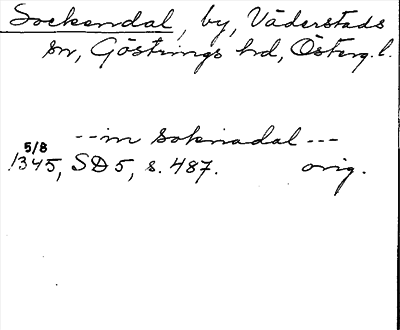 Sockendal, by, Väderstads
sn, Göstrings hd, Österg.l.
--in Soknadal ---
5/8
1345, SD 5, s. 487. orig.